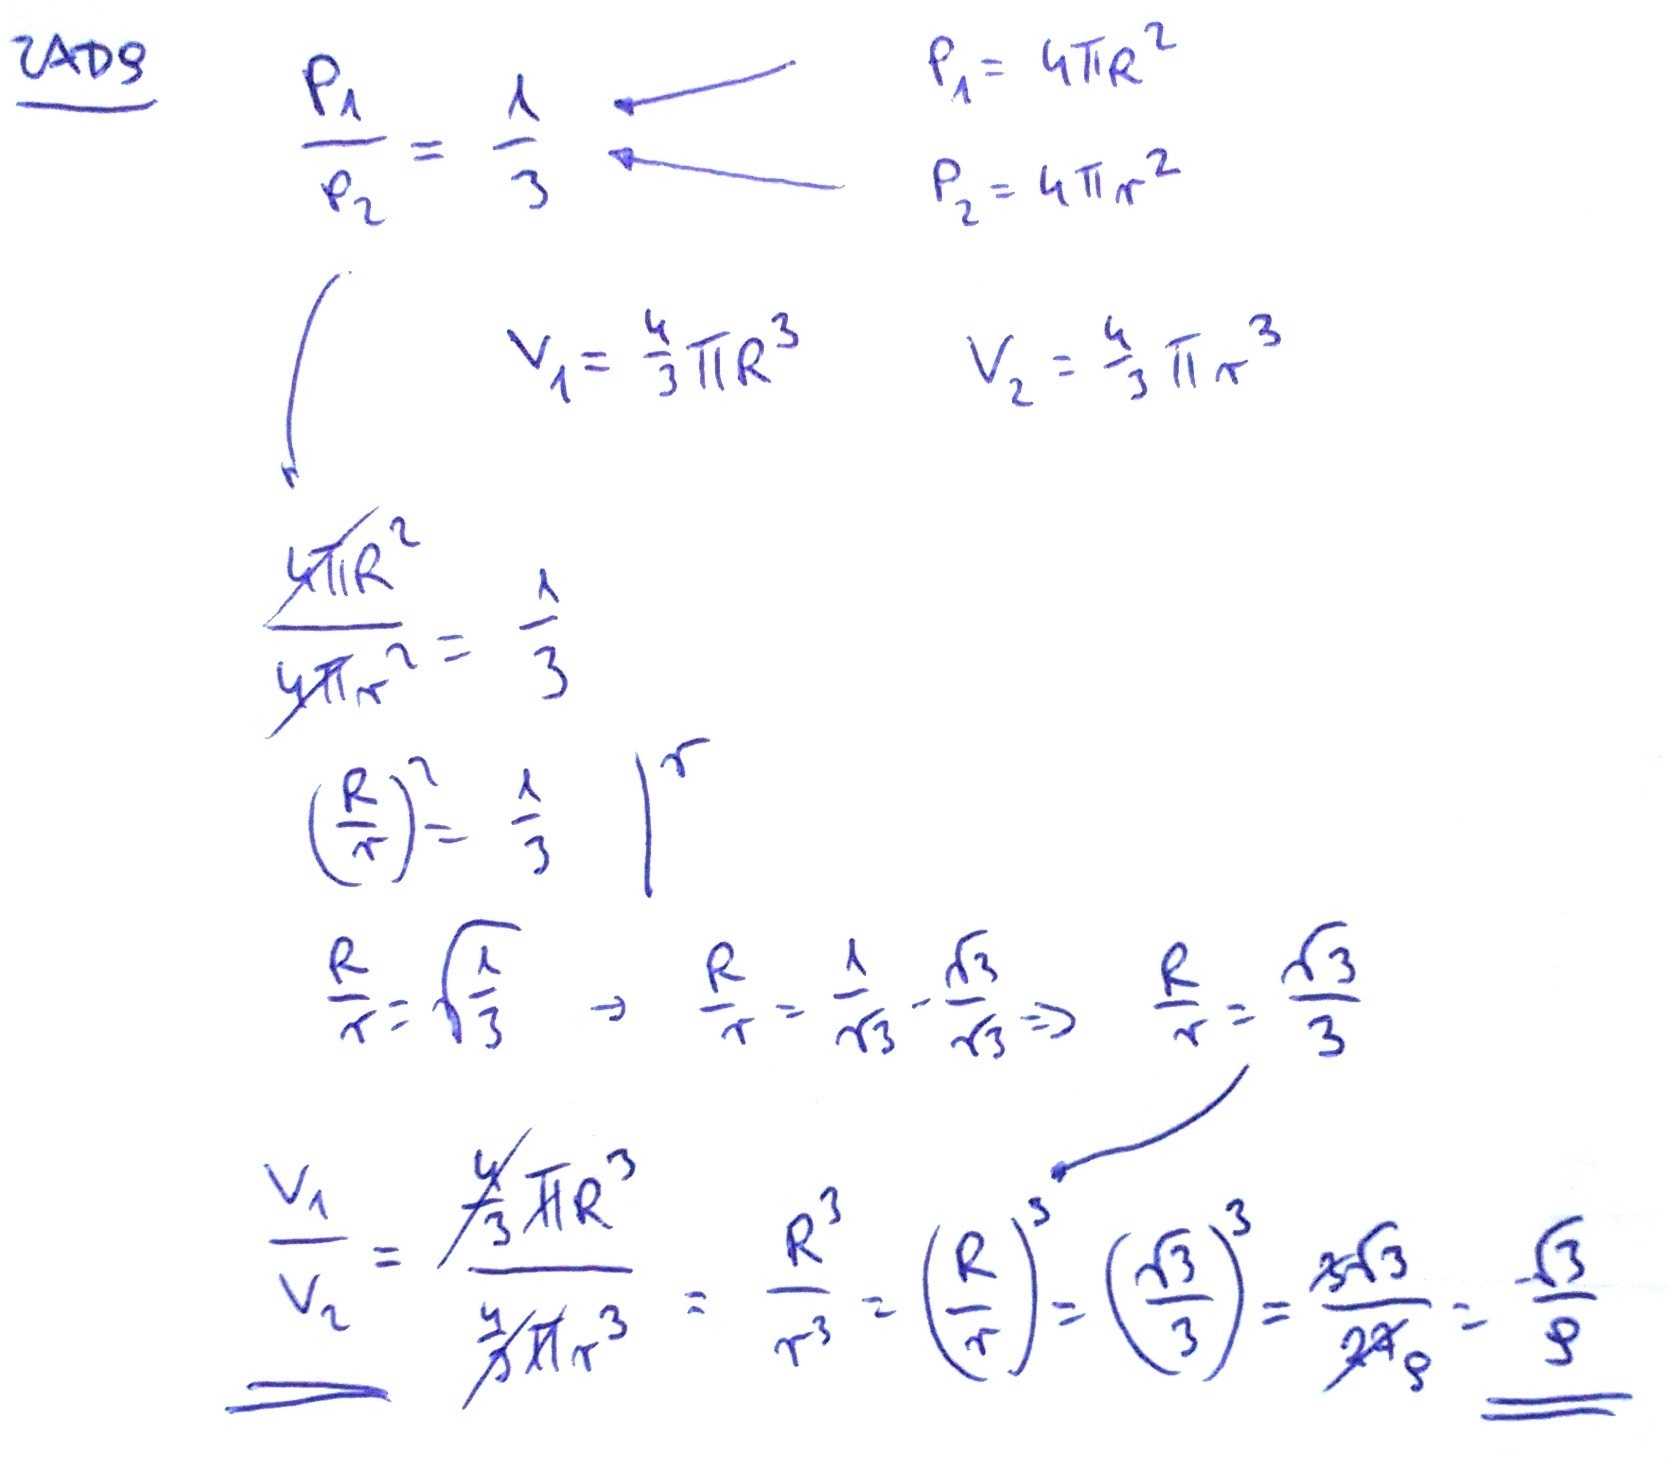 ZAD9
P₁/P₂ = 1/3
P₁ = 4πR²
P₂ = 4πr²
V₁ = 4/3 πR³ V₂ = 4/3 πr³
4πR²/4πr² = 1/3
(R/r)² = 1/3 | √
R/r = √(1/3) → R/r = 1/√3 · √3/√3 ⇒ R/r = √3/3
V₁/V₂ = (4/3 πR³)/(4/3 πr³) = R³/r³ = (R/r)³ = (√3/3)³ = 3√3/27 9 = √3/9